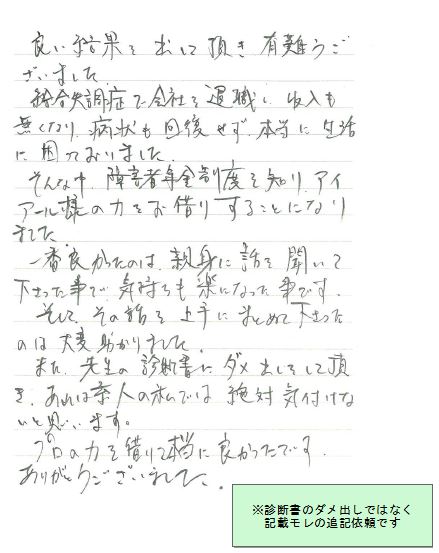 良い結果を出して頂き有難うご
ざいました。
統合失調症で会社を退職し、収入も
無くなり、病状も回復せず、本当に生活
に困っておりました。
そんな中、障害者年金制度を知り、アイ
アール様の力をお借りすることになり
ました。
一番良かったのは、親身に話を聞いて
下さった事で気持ちも楽になった事です。
そして、その話を上手にまとめて下さった
のは大変助かりました。
また、先生の診断書にダメ出しをして頂
き、あれは素人の私では絶対気付けな
いと思います。
プロの力を借りて本当に良かったです。
ありがとうございました。
※診断書のダメ出しではなく
記載モレの追記依頼です